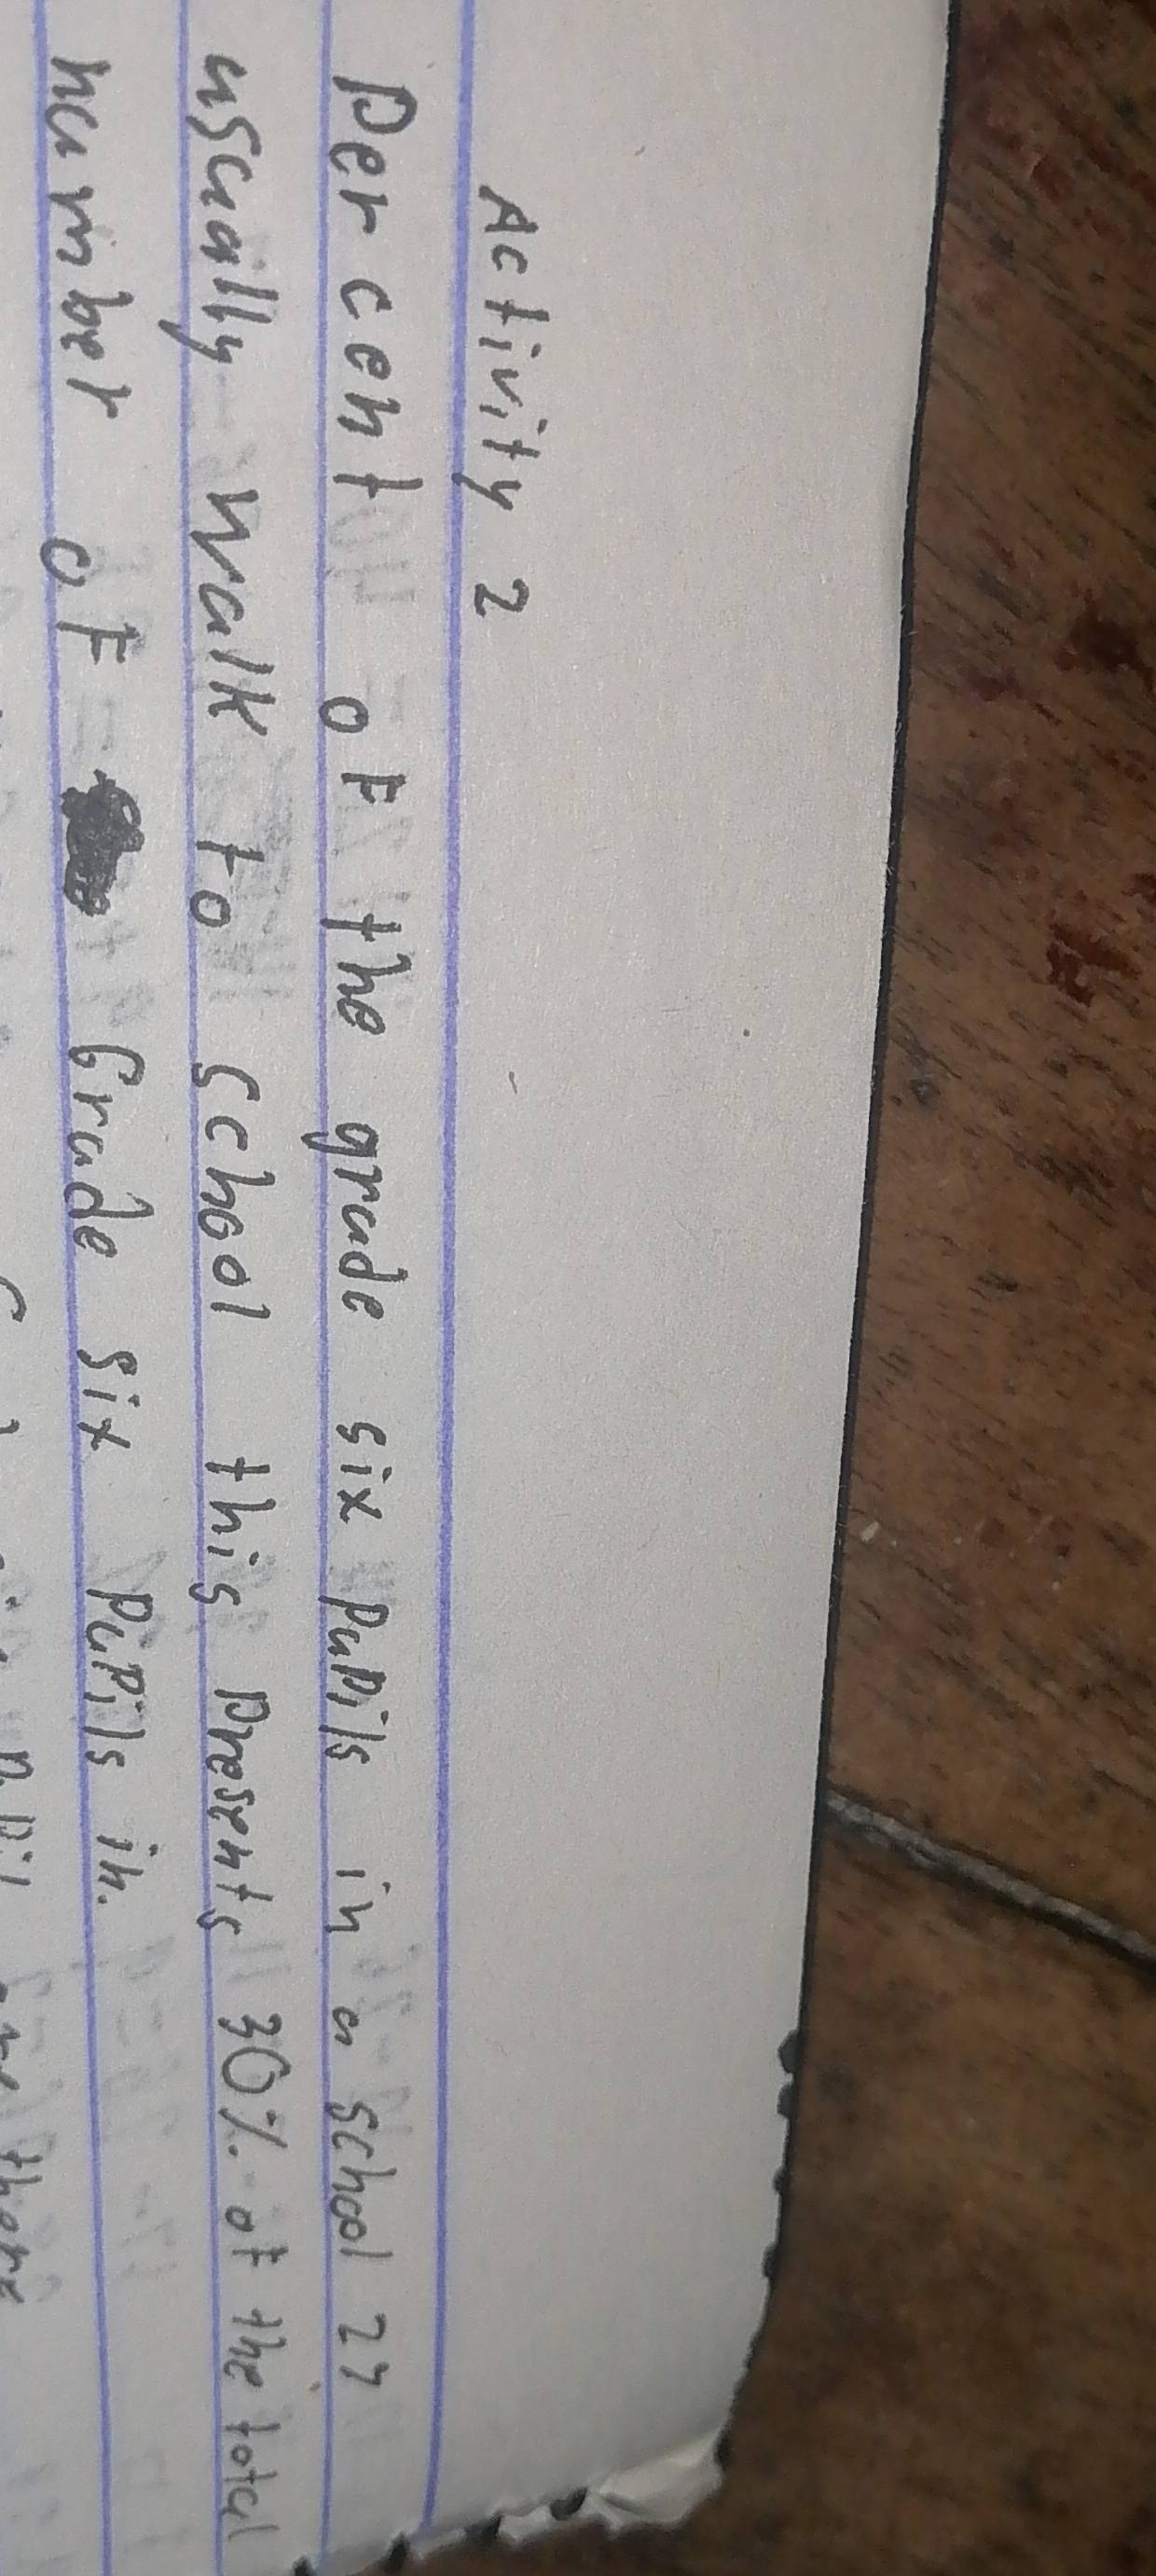 Activity 2
Per cent of the grade six pupils in a school 27
uscually walk to school this presents 30% of the total
number of Grade six pupils in.